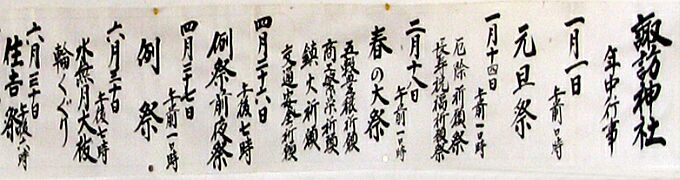 諏訪神社
年中行事
一月一日
午前一时
元旦祭
一月十四日
午前一〇時
厄除祈願祭
長寿祝福祈願祭
二月十八日
午前一〇時
春の大祭
五穀豊穣祈願
商売繁栄祈願
鎮火祈願
交通安全祈願
四月二十六日
午後七時
例祭前夜祭
四月二十七日
午前一〇時
例祭
六月三十日
午後七時
水無月大祓
輪くぐり
六月三十日
午後八時
住吉祭